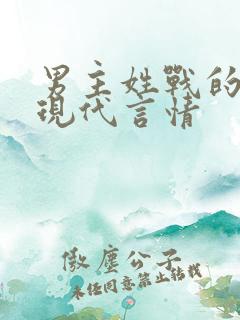 男主姓戰的
現代言情
傲塵公子
未经同意禁止转载